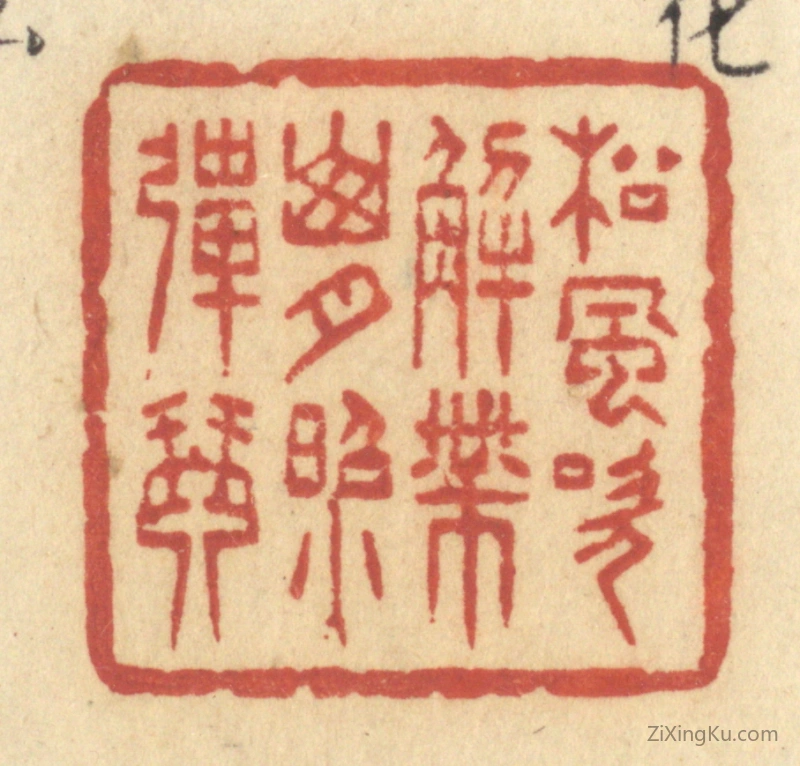 化
松風吹
解帶
山月照
彈琴
ZiXingKu.com